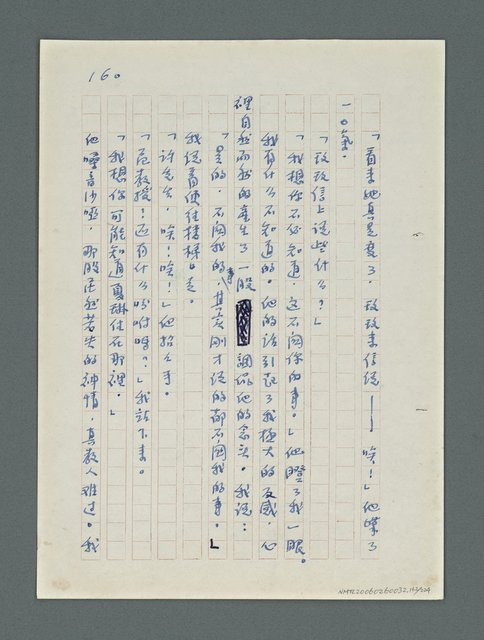 160
「看來她真是變了，玫玫來信說——唉！」他嘆了
一口氣。
「玫玫信上說些什么？」
「我想你不必知道，這不関你的事。」他瞪了我一眼。
我有什么不知道的。他的話引起了我極大的反感，心
裡自然而然的產生了一股調侃他的念头。我說：
「是的，不関我的事，其实剛才說的都不関我的事。」
我說着便往樓梯口走。
「許先生，唉！唉！」他招之手。
「范教授！还有什么吩咐嗎？」我站下來。
「我想你可能知道夏琳住在那裡。」
他嗓音沙啞，那股茫然若失的神情，真教人难过。我
NMTL20060260032.113/224